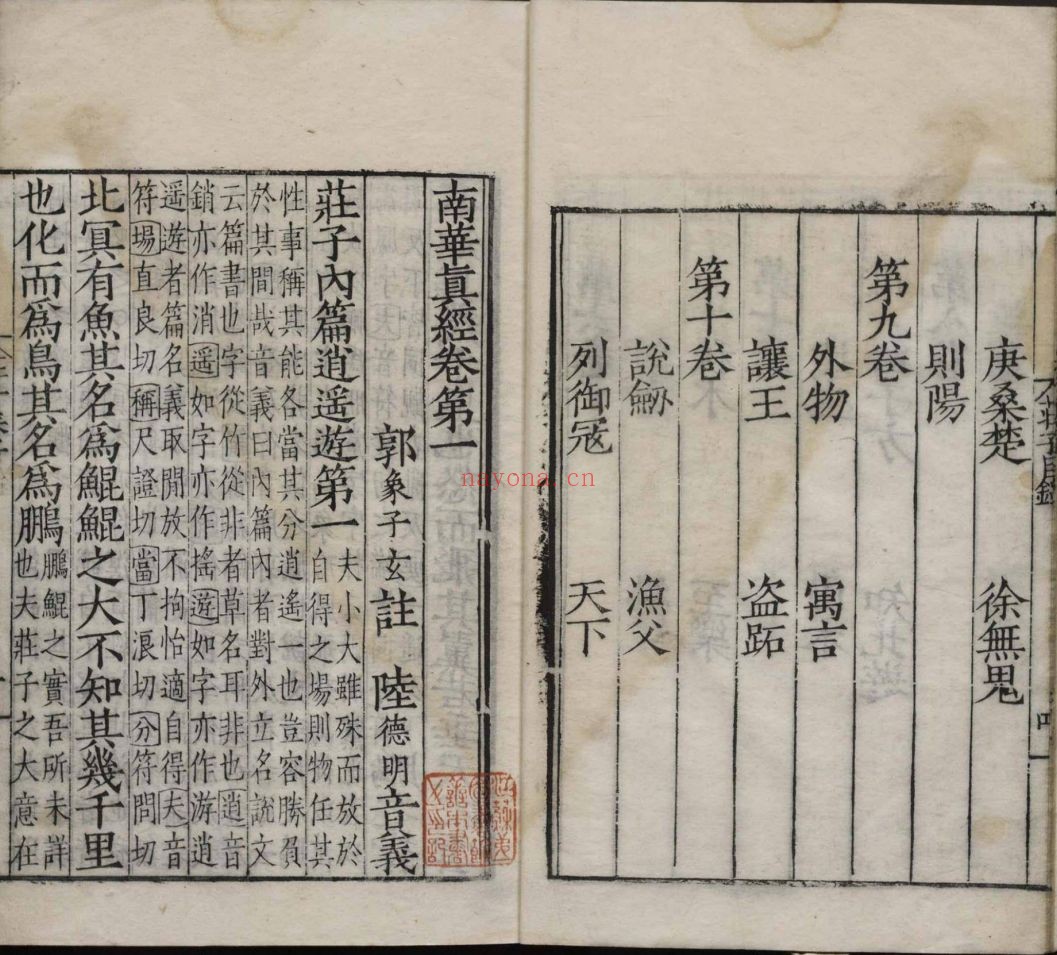 庚桑楚 徐無鬼
則陽
第九卷
外物 寓言
讓王 盗跖
第十卷
說劒 漁父
列御冦 天下
南華眞經卷第一
郭象子玄註 陸德明音義
莊子內篇逍遥遊第一
夫小大雖殊而放於
自得之場則物任其
性事稱其能各當其分逍遥一也豈容勝負
於其間哉音義曰內篇內者對外立名說文
云篇書也字從竹從非者草名耳非也逍音
銷亦作消遥如字亦作揺遊如字亦作游逍
遥遊者篇名義取閒放不拘怡適自得夫音
符場直良切稱尺證切當丁浪切分符問切
北冥有魚其名爲鯤鯤之大不知其幾千里
也化而爲鳥其名爲鵬
鵬鯤之實吾所未詳
也夫莊子之大意在
nayona.cn